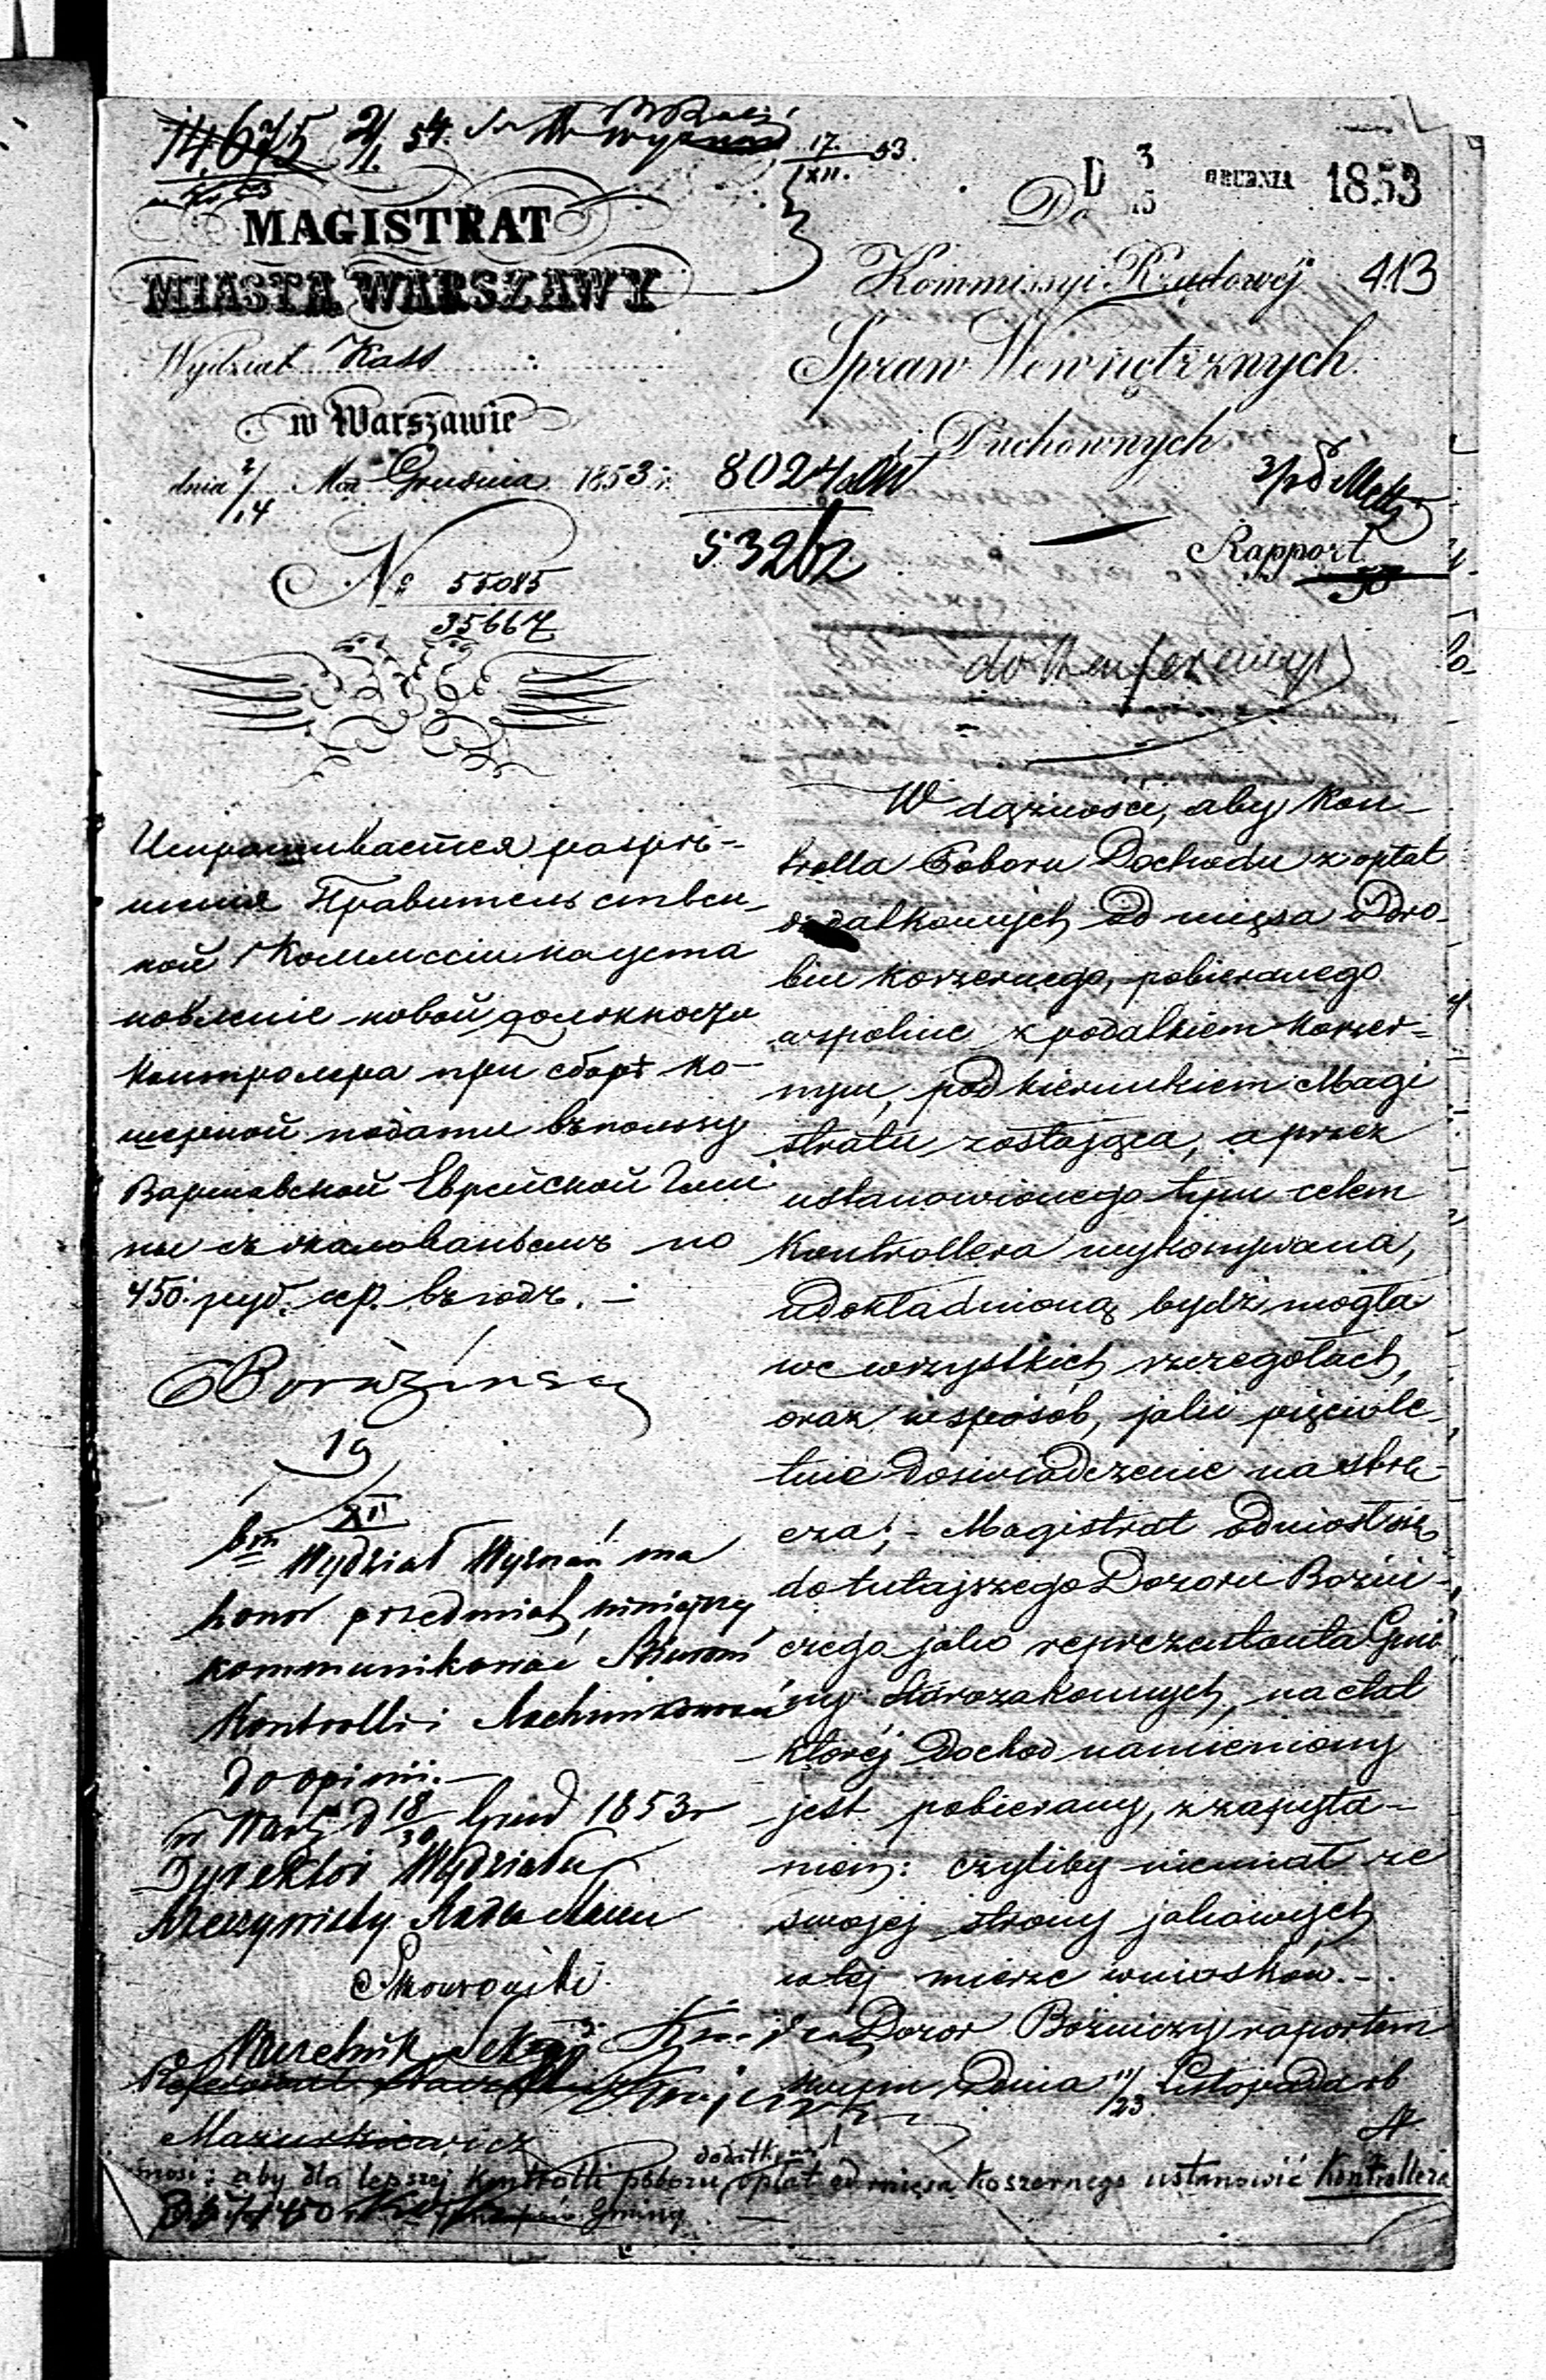 14,675 2/1 54.
17/XII. 53.
D 3/15 GRUDNIA 1853
MAGISTRAT
MIASTA WARSZAWY
Wydział Kass
w Warszawie
dnia 2/14 Mca Grudnia 1853 r.
No 55085
35667
Do
Kommissyi Rządowéj 413
Spraw Wewnętrznych
i Duchownych
8024
532
Rapport
do Konferencyi
Испрашивается разрѣ-
шенія Правительствен-
ной Коммиссіи на уста
новленіе новой должносчи
Контролера при сборѣ ко-
шерной подати въ пользу
Варшавской Еврейской Гми
ны съ жалованьемъ по
450. руб. сер. въ годъ. -
19/XII
Wydział Wyznań ma
honor przedmiot niniejszy
kommunikować Biurowi
Kontrolli i Rachunkowości
do opinii. -
w Warsz d 18/30 Grud 1853 r
Dyrektor Wydziału
Rzeczywisty Radca Stanu
Naczelnik Sekcyi
Mazurkiewicz
W dążności, aby Kon-
trolla Poboru Dochodu z opłat
dodatkowych od mięsa i Dro-
biu koszernego, pobieranego
wspolnie z podatkiem koszer-
nym, pod kierunkiem Magi
stratu zostająca, a przez
ustanowionego tym celem
Kontrollera wykonywana,
udokładnioną bydź mogła
we wszystkich szczegołach,
oraz w sposób, jaki pięciole-
tnie doświadczenie nastrę-
cza; - Magistrat odniosł się
do tutajszego Dozoru Bożni-
czego jako reprezentanta Gmi
ny Starozakonnych, na etat
ktoréj Dochod namieniony
jest pobierany, z zapyta-
niem: czyliby niemiał ze
swojej strony jakowych
w tej mierze wniosków. -
Dozor Bożniczy raportem
swym z Dnia 11/23 Listopada rb
wnosi: aby dla lepszej kontrolli poboru dodatkowych opłat od mięsa koszernego ustanowić Kontrollera
450 Gminy